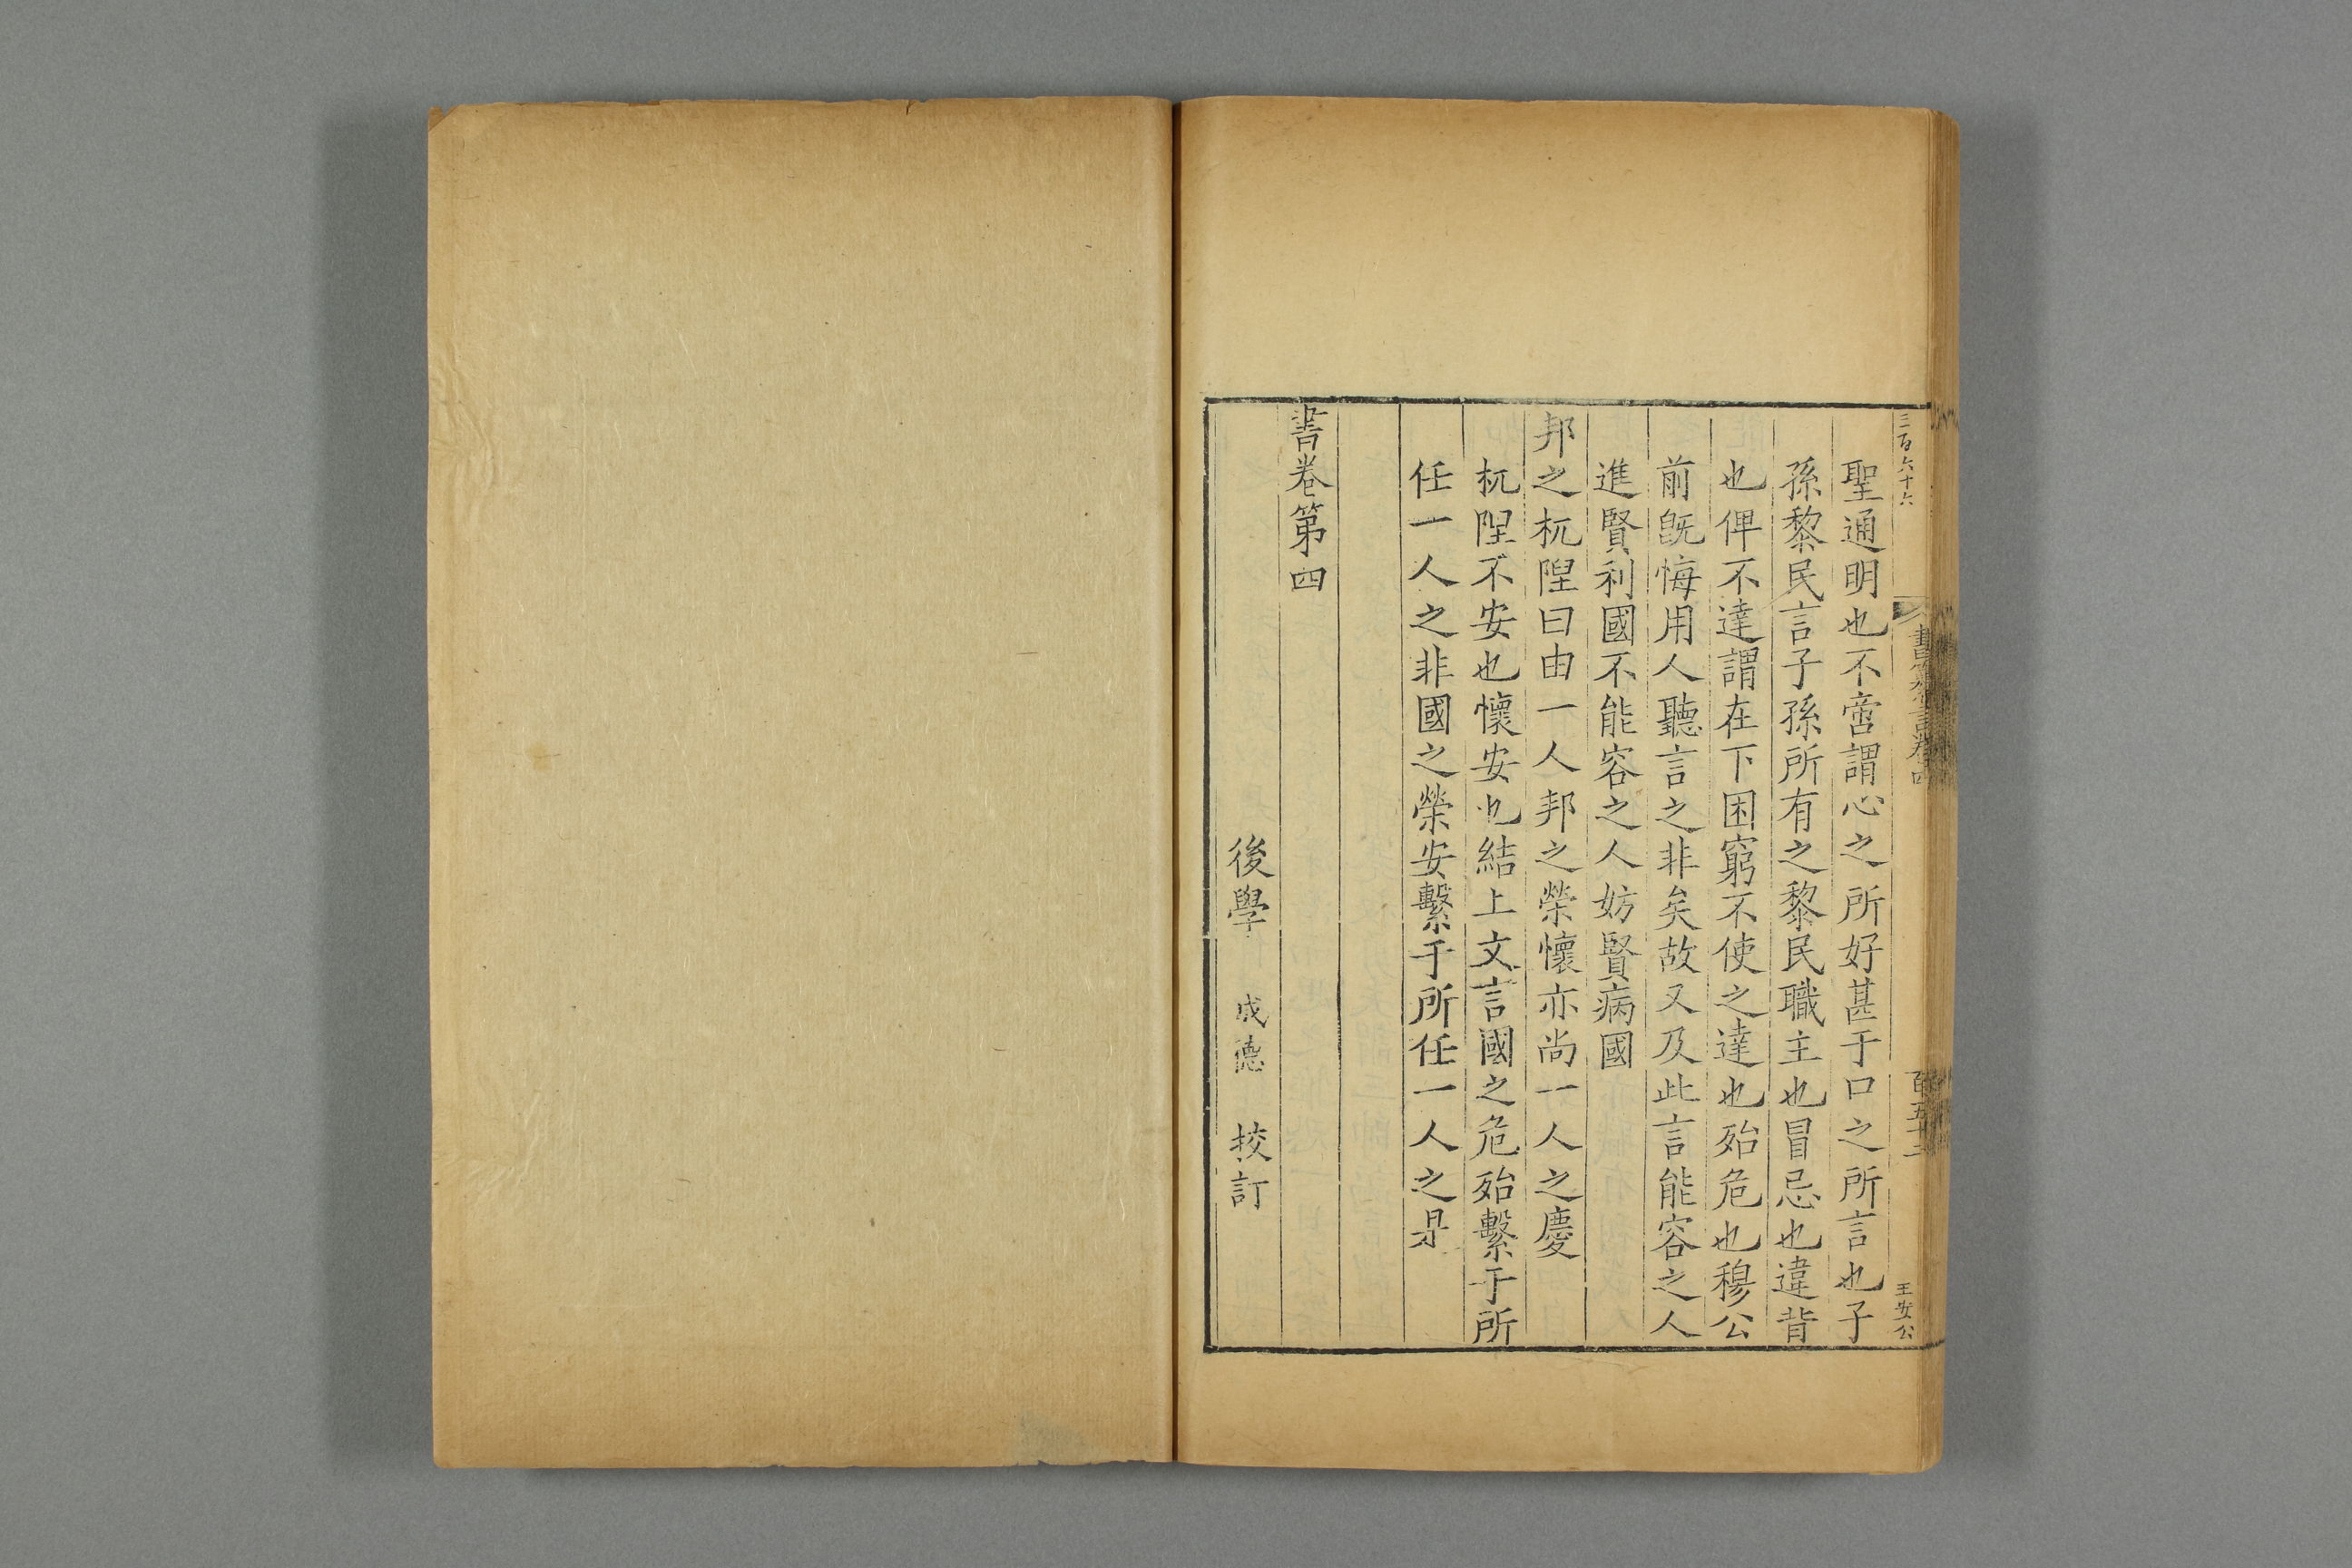 三百六十六
百五十二
王安公
聖通明也不啻謂心之所好甚于口之所言也子
孫黎民言子孫所有之黎民職主也冒忌也違背
也俾不達謂在下困窮不使之達也殆危也穆公
前既悔用人聽言之非矣故又及此言能容之人
進賢利國不能容之人妨賢病國
邦之杌隉曰由一人邦之榮懷亦尚一人之慶
杌隉不安也懷安也結上文言國之危殆繫于所
任一人之非國之榮安繫于所任一人之是
書卷第四
後學 成德 挍訂